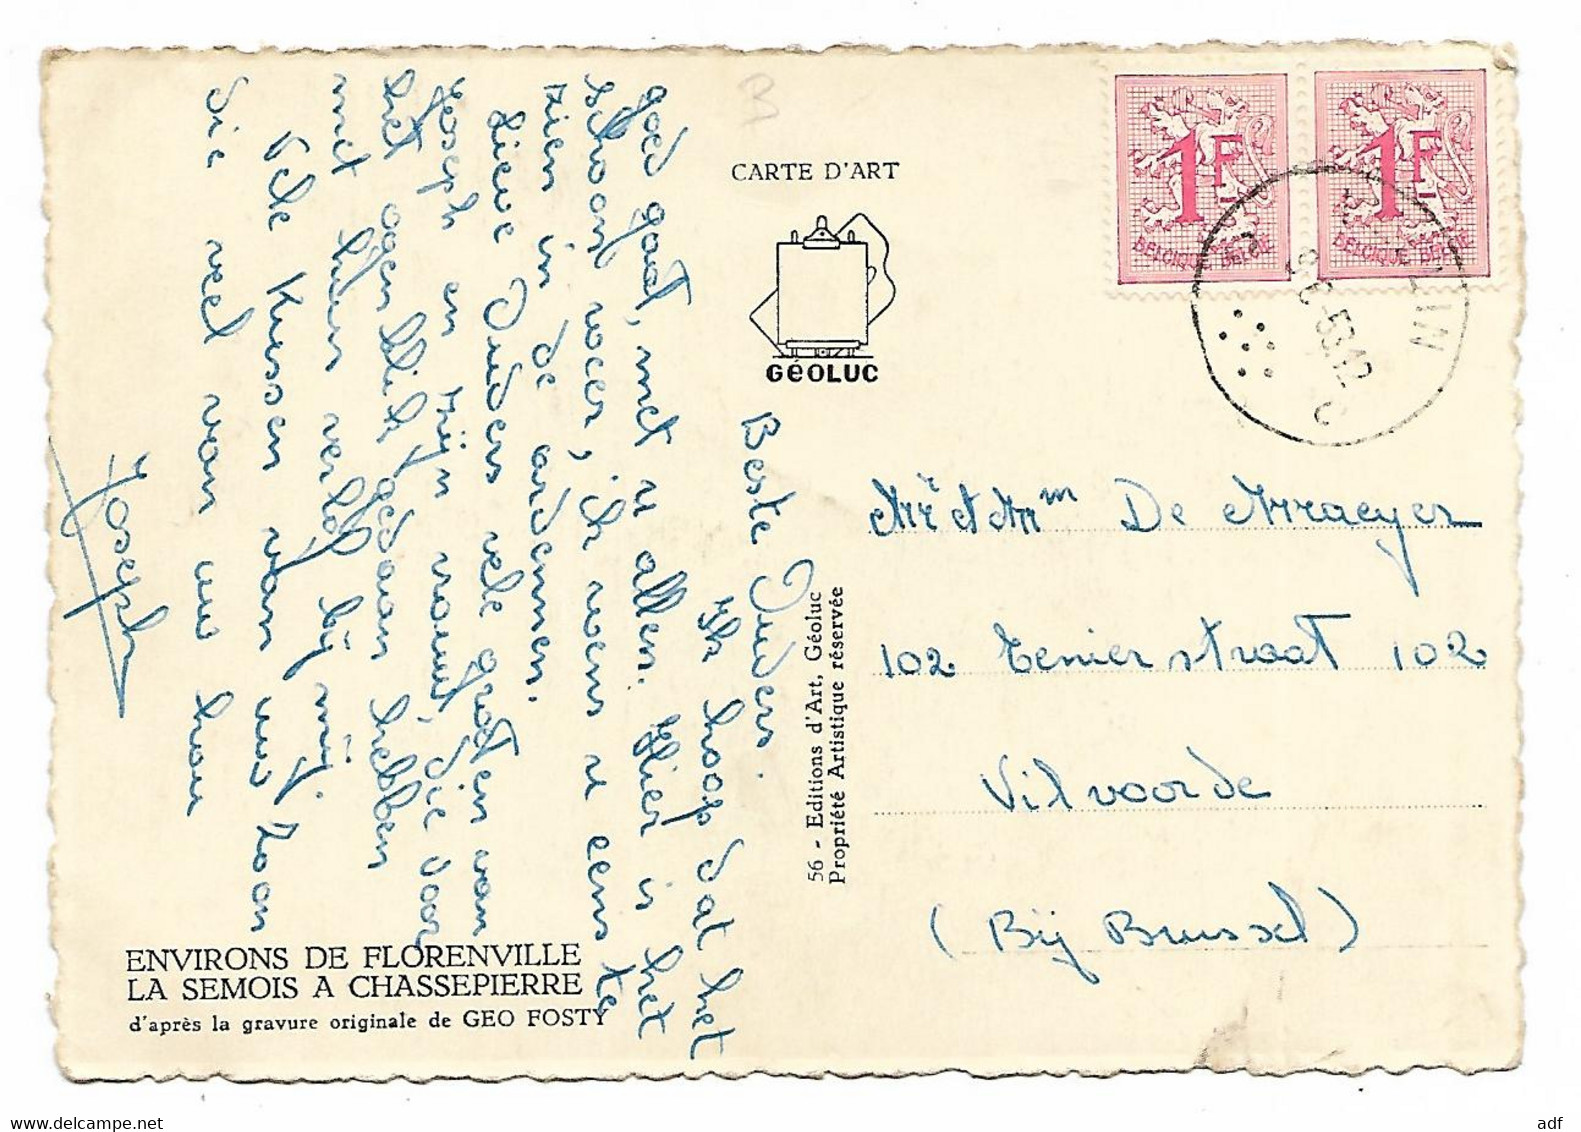 CARTE D'ART
GéOLUC
1F
BELGIQUE BELGIE
1F
BELGIQUE BELGIE
Beste Ouders.
Ik hoop dat het
goed gaat, met u allen. Hier is het
schoon weer, ik wens u eens te
zien in de ardennen.
Lieve Ouders vele groeten van
Joseph en zijn vrouw, die voor
het ogenblik gedaan hebben
met hun verlof bij mij.
Vele Kussen van uw Zoon
die veel van uw hou
Joseph
56 - Editions d'Art, Géoluc
Propriété Artistique réservée
De Maeyer
102 Tenierstraat 102
Vilvoorde
(Bij Brussel)
ENVIRONS DE FLORENVILLE
LA SEMOIS A CHASSEPIERRE
d'après la gravure originale de GEO FOSTY
www.delcampe.net
adf